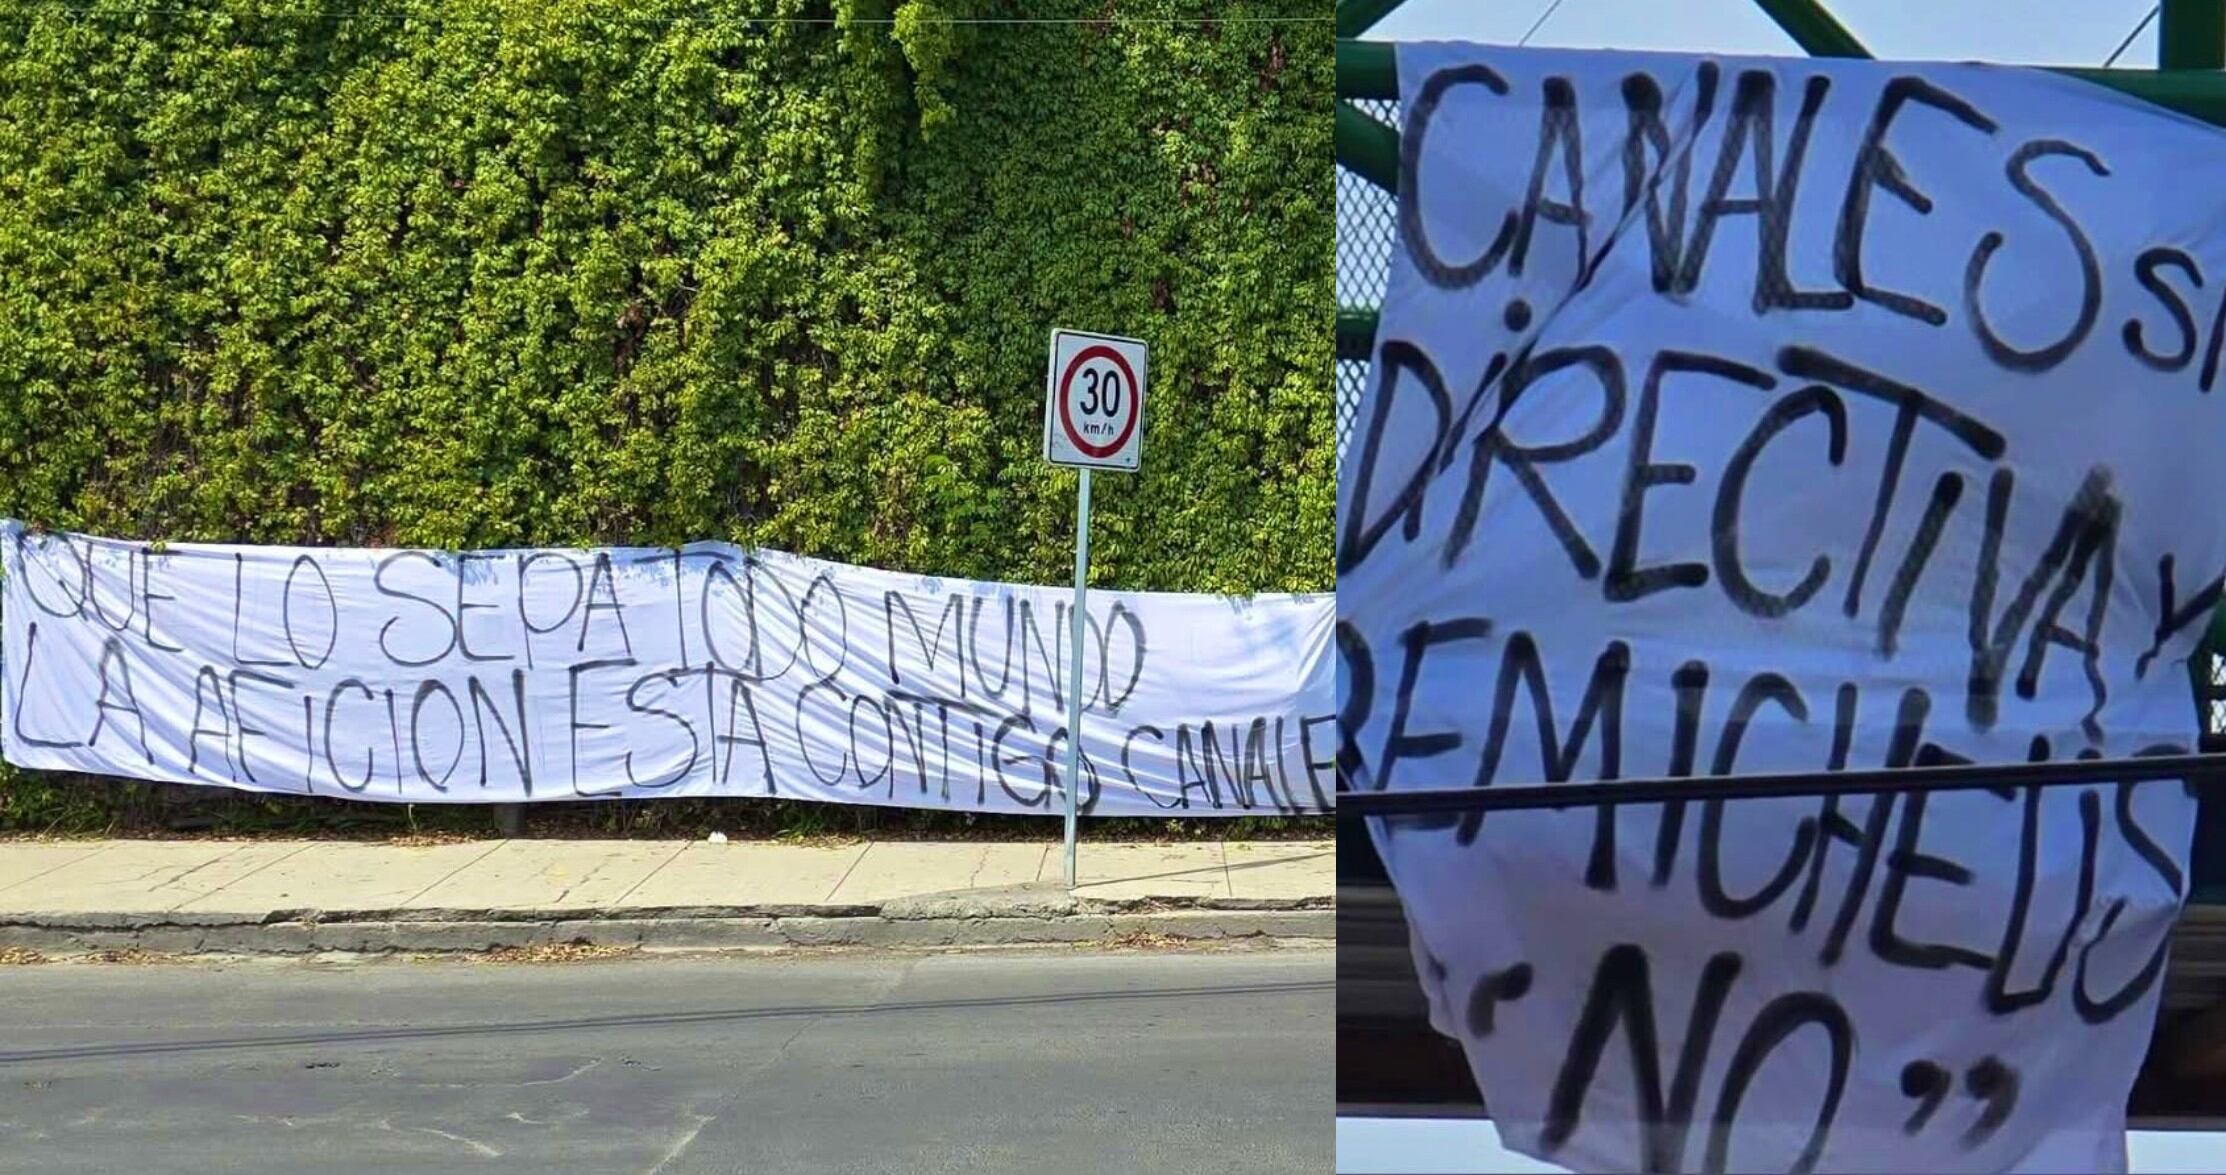 QUE LO SEPA TODO MUNDO
LA AFICION ESTA CONTIGO CANALE
30
km/h
CANALES SI
DiRECTIVA Y
REMICHELIS
"NO"